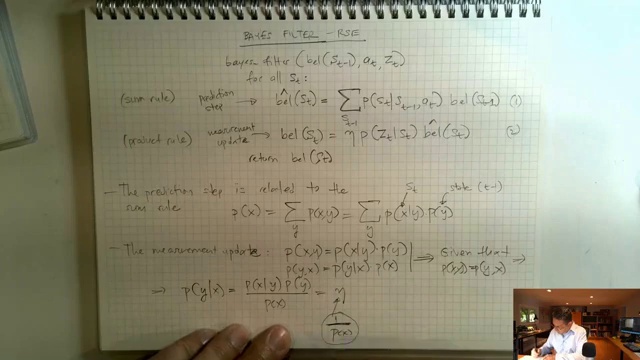 BAYES FILTER - RSE
bayes-filter (bel(S_{t-1}), a_t, Z_t)
for all S_t:
(sum rule) prediction step → bel̂(S_t) = Σ_{S_{t-1}} p(S_t|S_{t-1}, a_t) bel(S_{t-1}) (1)
(product rule) measurement update → bel(S_t) = η p(Z_t|S_t) bel̂(S_t) (2)
return bel(S_t)
S_t state (t-1)
- The prediction step is related to the
sum rule p(x) = Σ_y p(x,y) = Σ_y p(x|y) p(y)
- The measurement update: p(x,y) = p(x|y) · p(y) ⟹ Given that ⟹
p(y,x) = p(y|x) p(x) p(x,y) = p(y,x)
⟹ p(y|x) = p(x|y) p(y) / p(x) = η
1 / p(x)